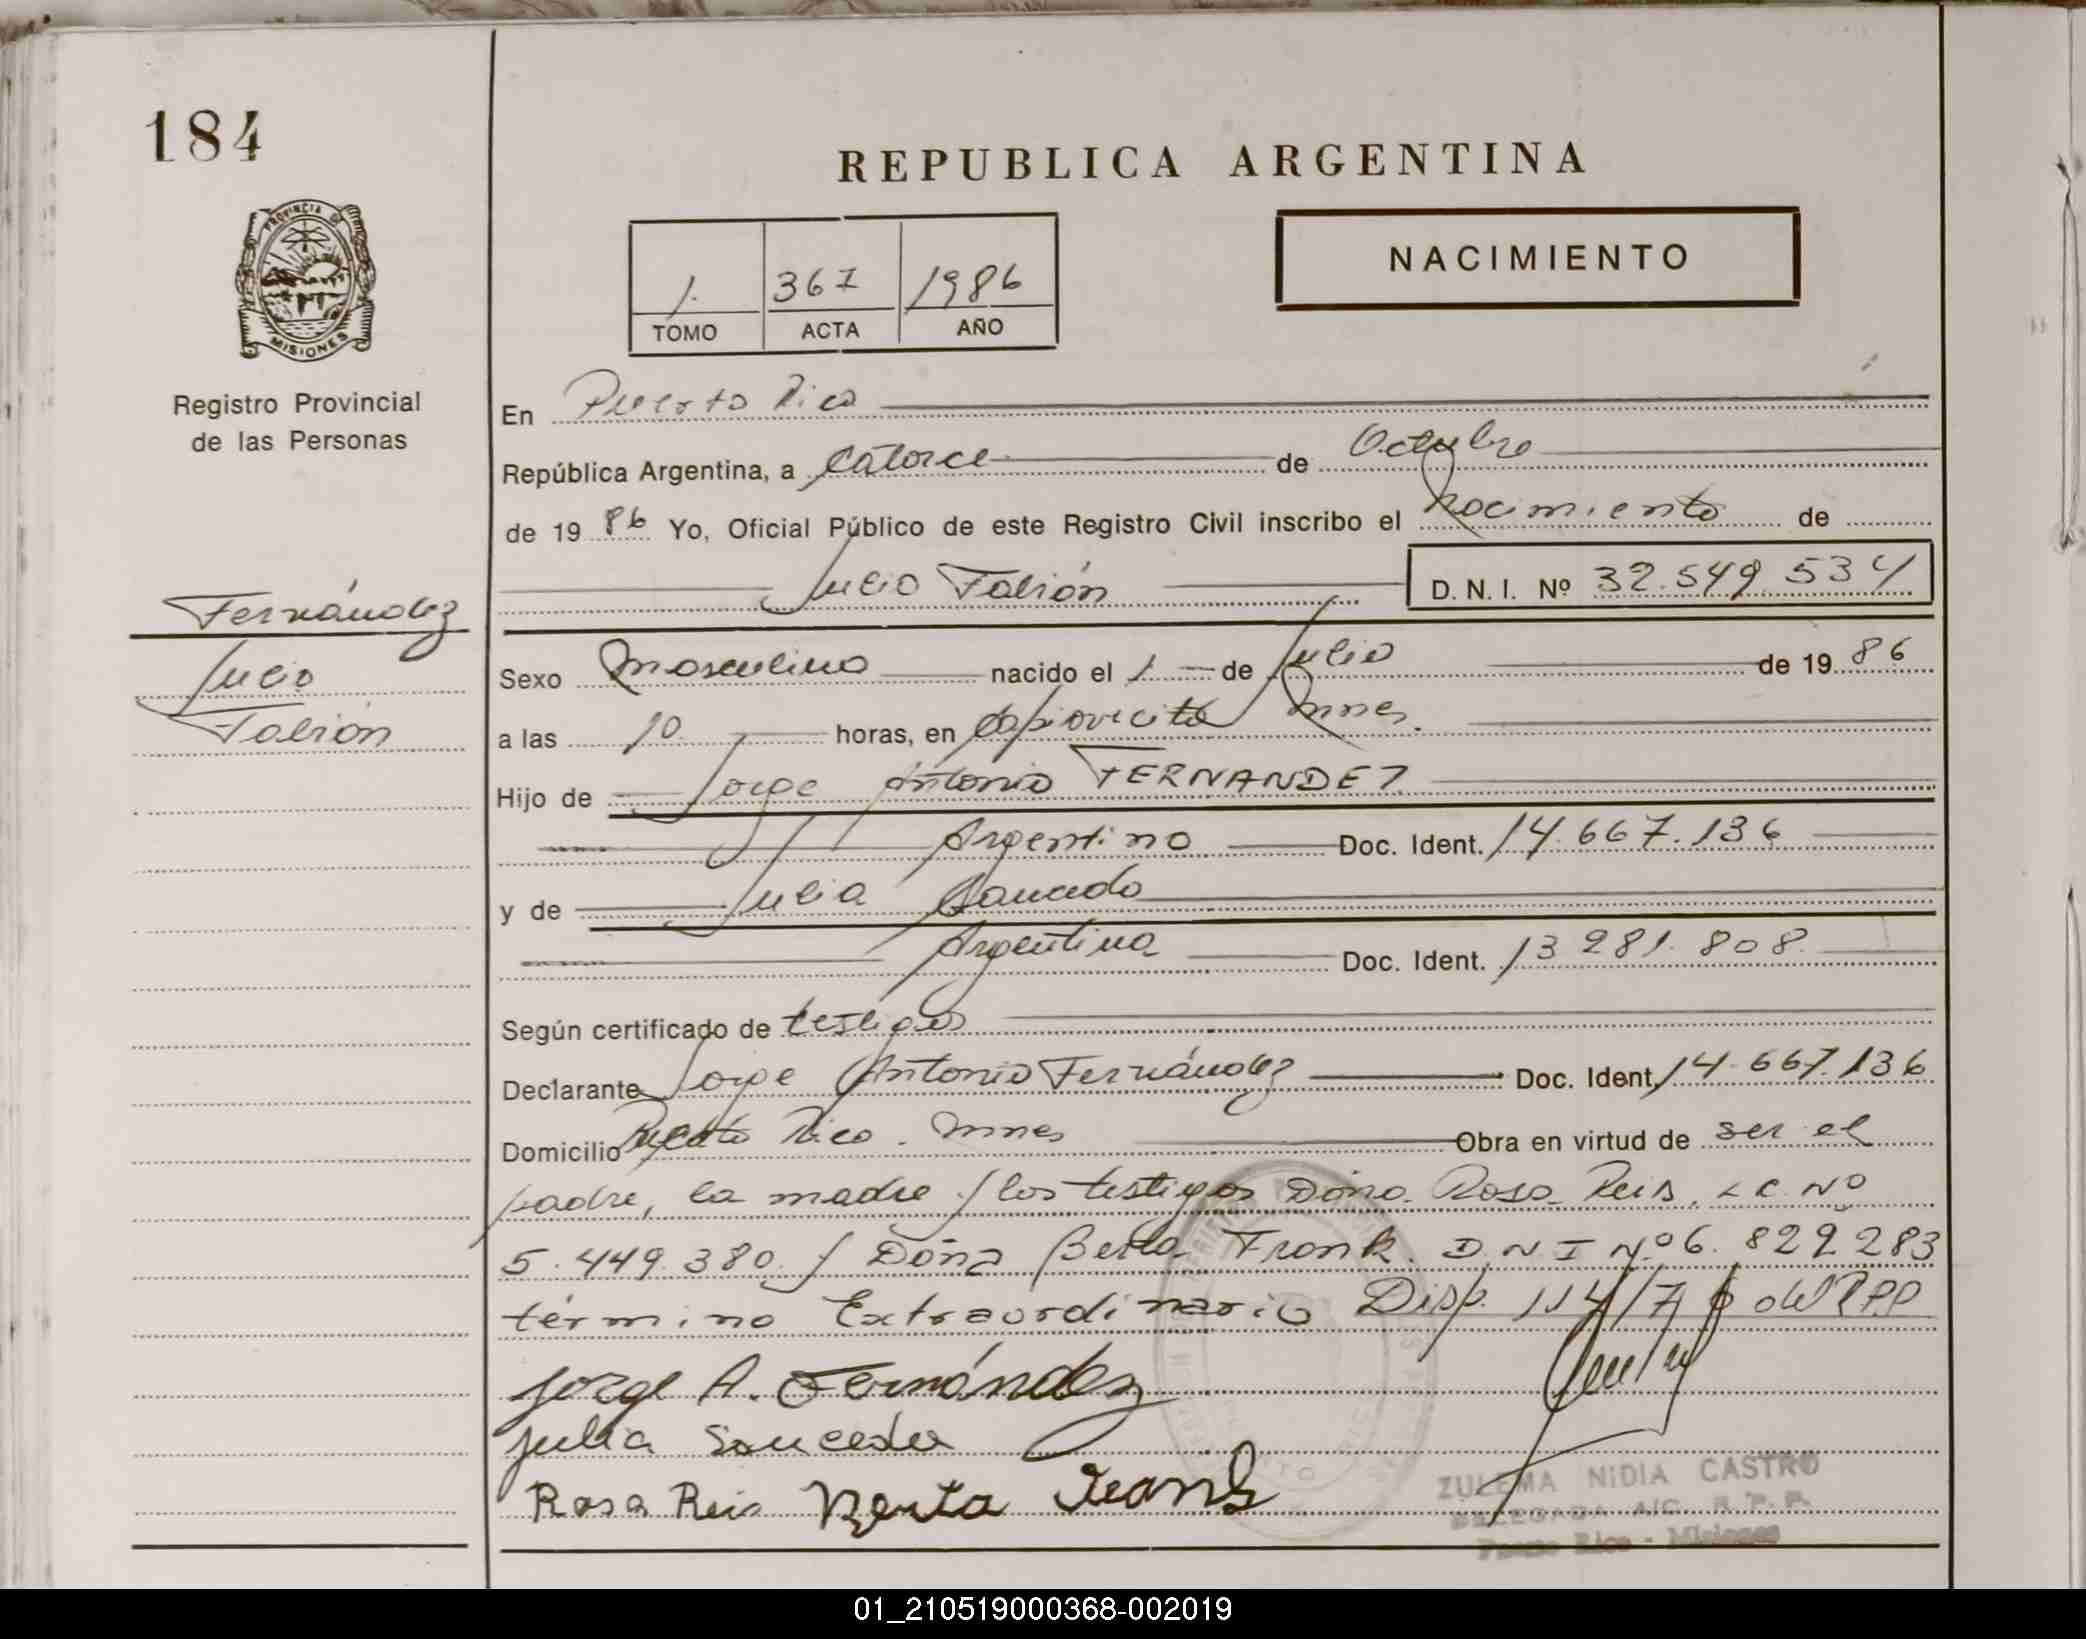 184
REPUBLICA ARGENTINA
NACIMIENTO
1. 367 1986
TOMO ACTA AÑO
PROVINCIA DE
MISIONES
Registro Provincial
de las Personas
En Puerto Rico
República Argentina, a Catorce de Octubre
de 19 86 Yo, Oficial Público de este Registro Civil inscribo el Nacimiento de
Julio Fabián D.N.I. Nº 32.549.534
Fernández
Julio
Fabián
Sexo Masculino nacido el 1 de Julio de 19 86
a las 10 horas, en Capiovicito Mnes.
Hijo de Jorge Antonio FERNANDEZ
Argentino Doc. Ident. 14.667.136
y de Julia Saucedo
Argentina Doc. Ident. 13 281.808
Según certificado de testigos
Declarante Jorge Antonio Fernández Doc. Ident. 14.667.136
Domicilio Puerto Rico. Mnes Obra en virtud de ser el
padre, la madre y los testigos Doña Rosa Reis, L.C. Nº
5.449.380 y Doña Berta Frank. D N I Nº 6.829.283
término Extraordinario Disp. 114/76 del RPP
Jorge A. Fernández
Julia Saucedo
Rosa Reis Berta
ZULEMA NIDIA CASTRO
DELEGADA A/C R.P.P.
Puerto Rico - Misiones
01_210519000368-002019